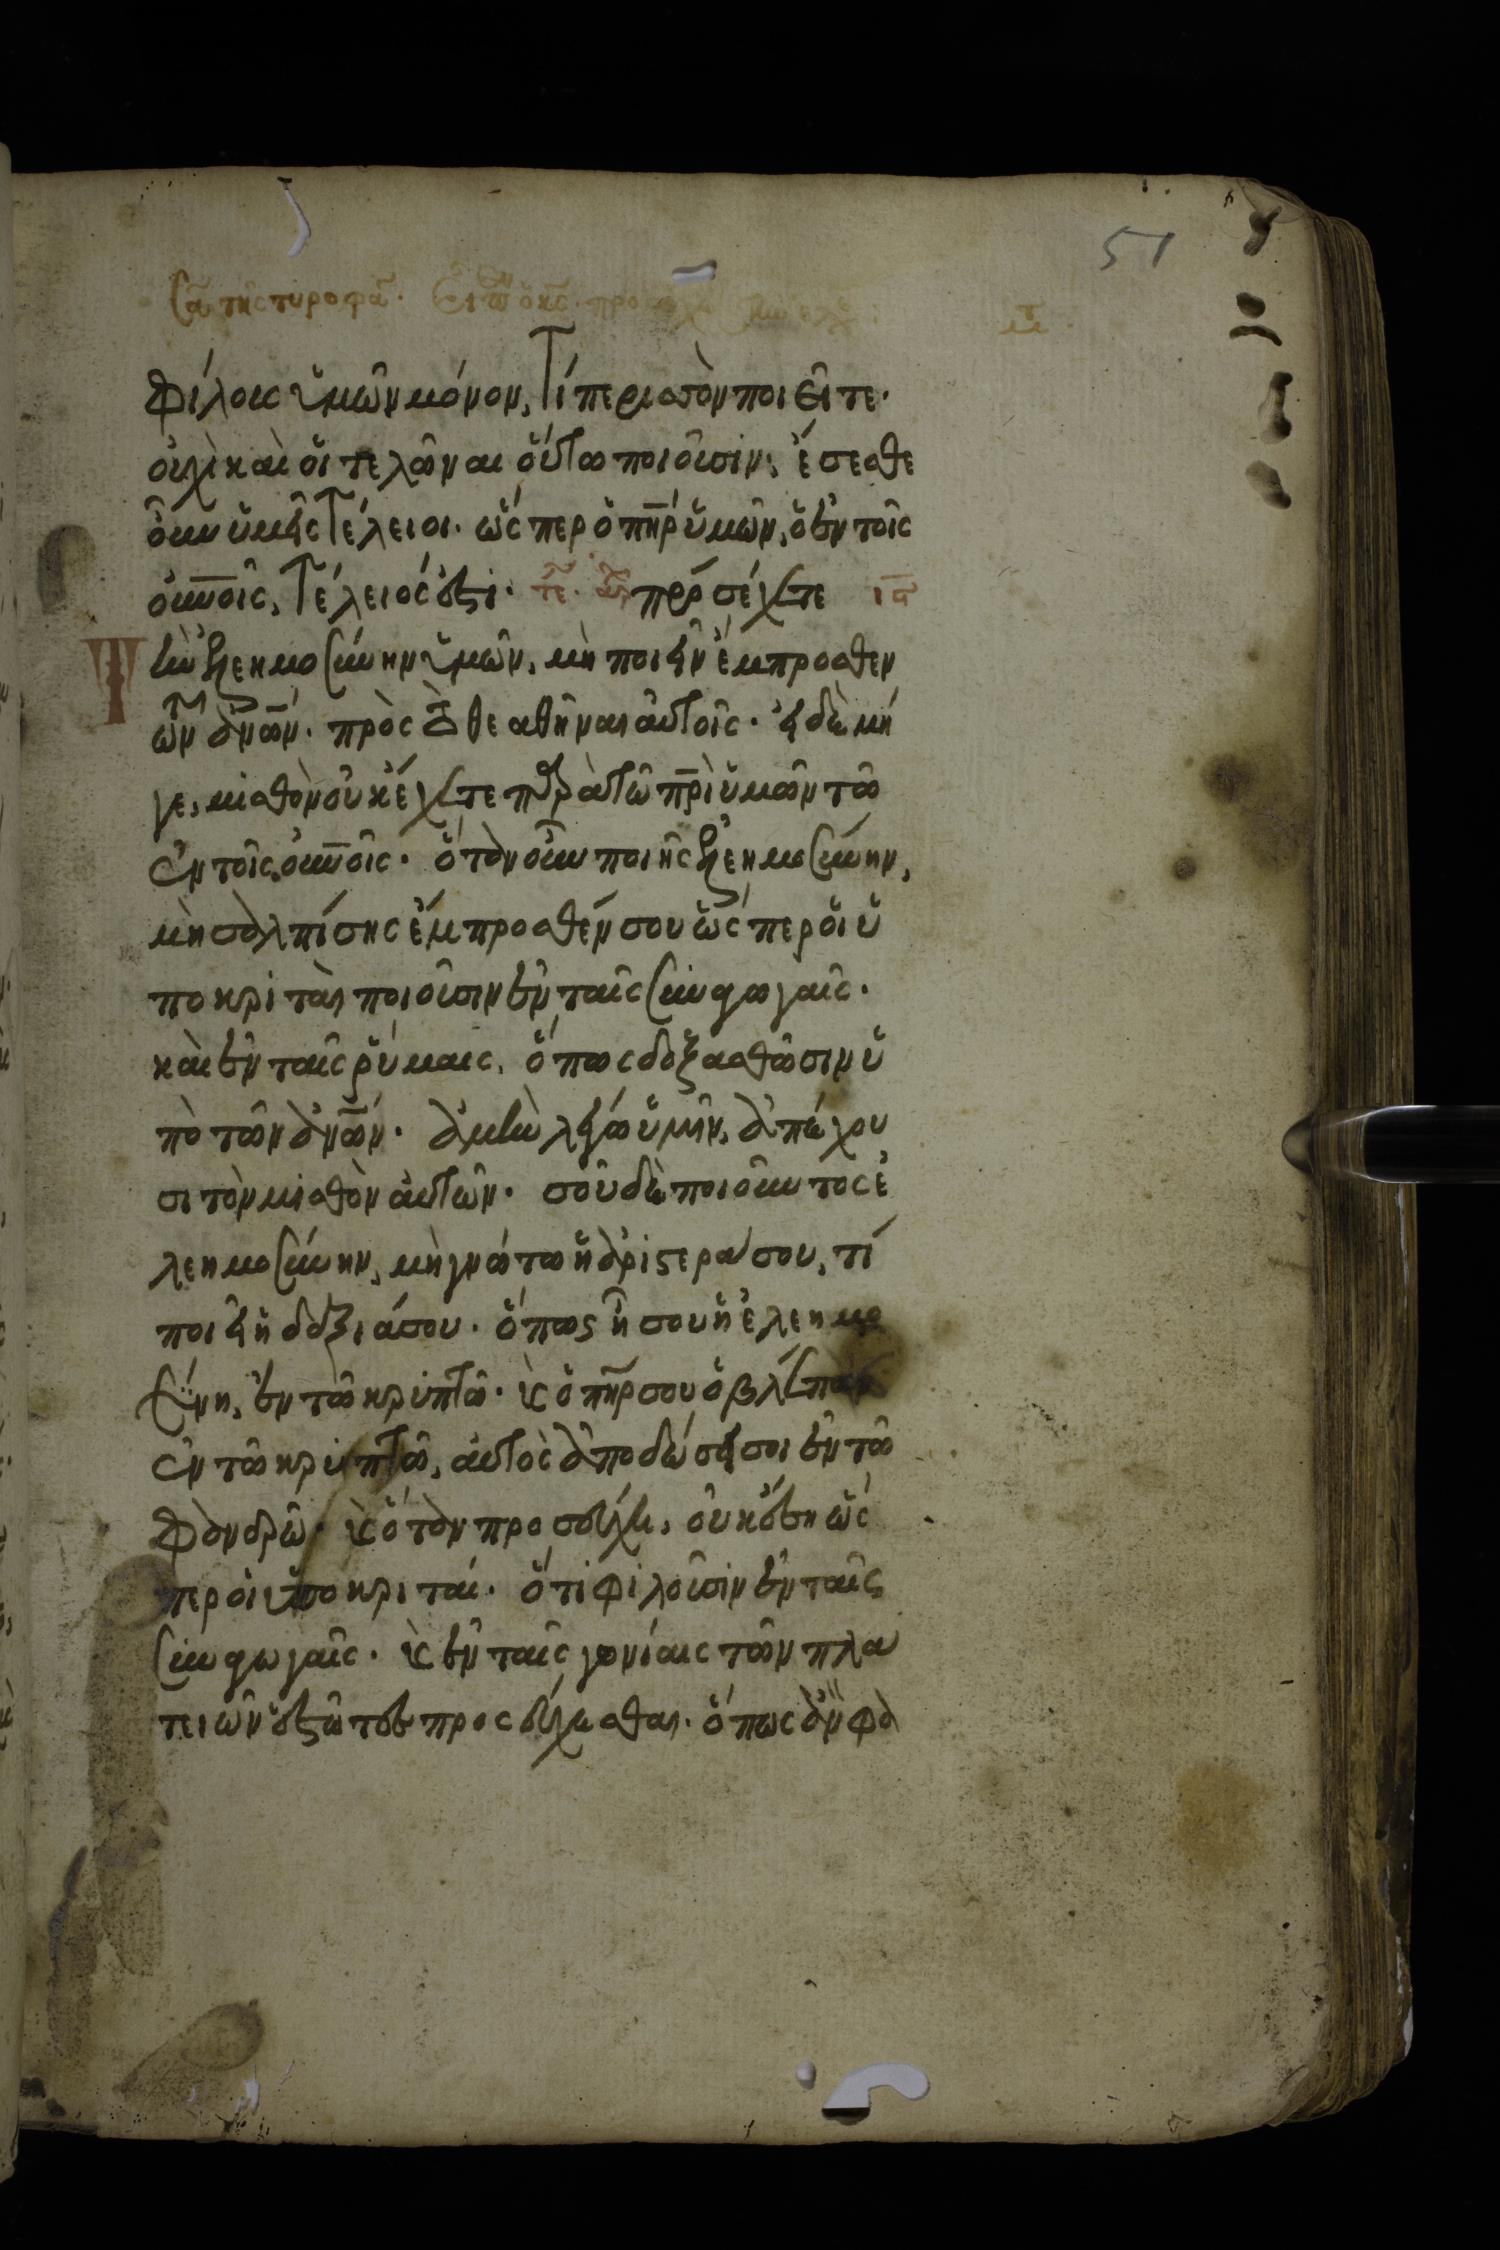 51
Σα της τυροφα. Ειπ ο κς. προσεχε
φίλους ὑμῶν μόνον, Τί περισσὸν ποιεῖτε·
οὐχὶ καὶ οἱ τελῶναι οὕτω ποιοῦσιν; ἔσεσθε
οὖν ὑμεῖς Τέλειοι· ὥς περ ὁ πηρ ὑμῶν, ὁ ἐν τοῖς
οὐνοῖς, Τέλειός ἐστι· τε. αρ προσέχετε ια
Τὴν ἐλεημοσύνην ὑμῶν, μὴ ποιεῖν ἔμπροσθεν
τῶν ἀνων· πρὸς τὸ θεαθῆναι αὐτοῖς· εἰ δὲ μή
γε, μισθὸν οὐκ ἔχετε παρὰ τῶ πρὶ ὑμῶν τῶ
ἐν τοῖς οὐνοῖς· ὅταν οὖν ποιῆς ἐλεημοσύνην,
μὴ σαλπίσης ἔμπροσθέν σου ὥς περ οἱ ὑ
ποκριταὶ ποιοῦσιν ἐν ταῖς συναγωγαῖς·
καὶ ἐν ταῖς ῥύμαις, ὅπως δοξασθῶσιν ὑ
πὸ τῶν ἀνων· ἀμὴν λέγω ὑμῖν, ἀπέχου
σι τὸν μισθὸν αὐτῶν· σοῦ δὲ ποιοῦντος ἐ
λεημοσύνην, μὴ γνώτω ἡ ἀριστερά σου, τί
ποιεῖ ἡ δεξιά σου· ὅπως ῆ σου ἡ ἐλεημο
σύνη, ἐν τῶ κρυπτῶ· κ ὁ πηρ σου ὁ βλέπων
ἐν τῶ κρυπτῶ, αὐτὸς ἀποδώσει σοι ἐν τῶ
φανερῶ· κ ὅταν προσεύχη, οὐκ ἔση ὥς
περ οἱ ὑποκριταί· ὅτι φιλοῦσιν ἐν ταῖς
συναγωγαῖς· κ ἐν ταῖς γωνίαις τῶν πλα
τειῶν ἑστῶτες προσεύχεσθαι· ὅπως ἂν φα